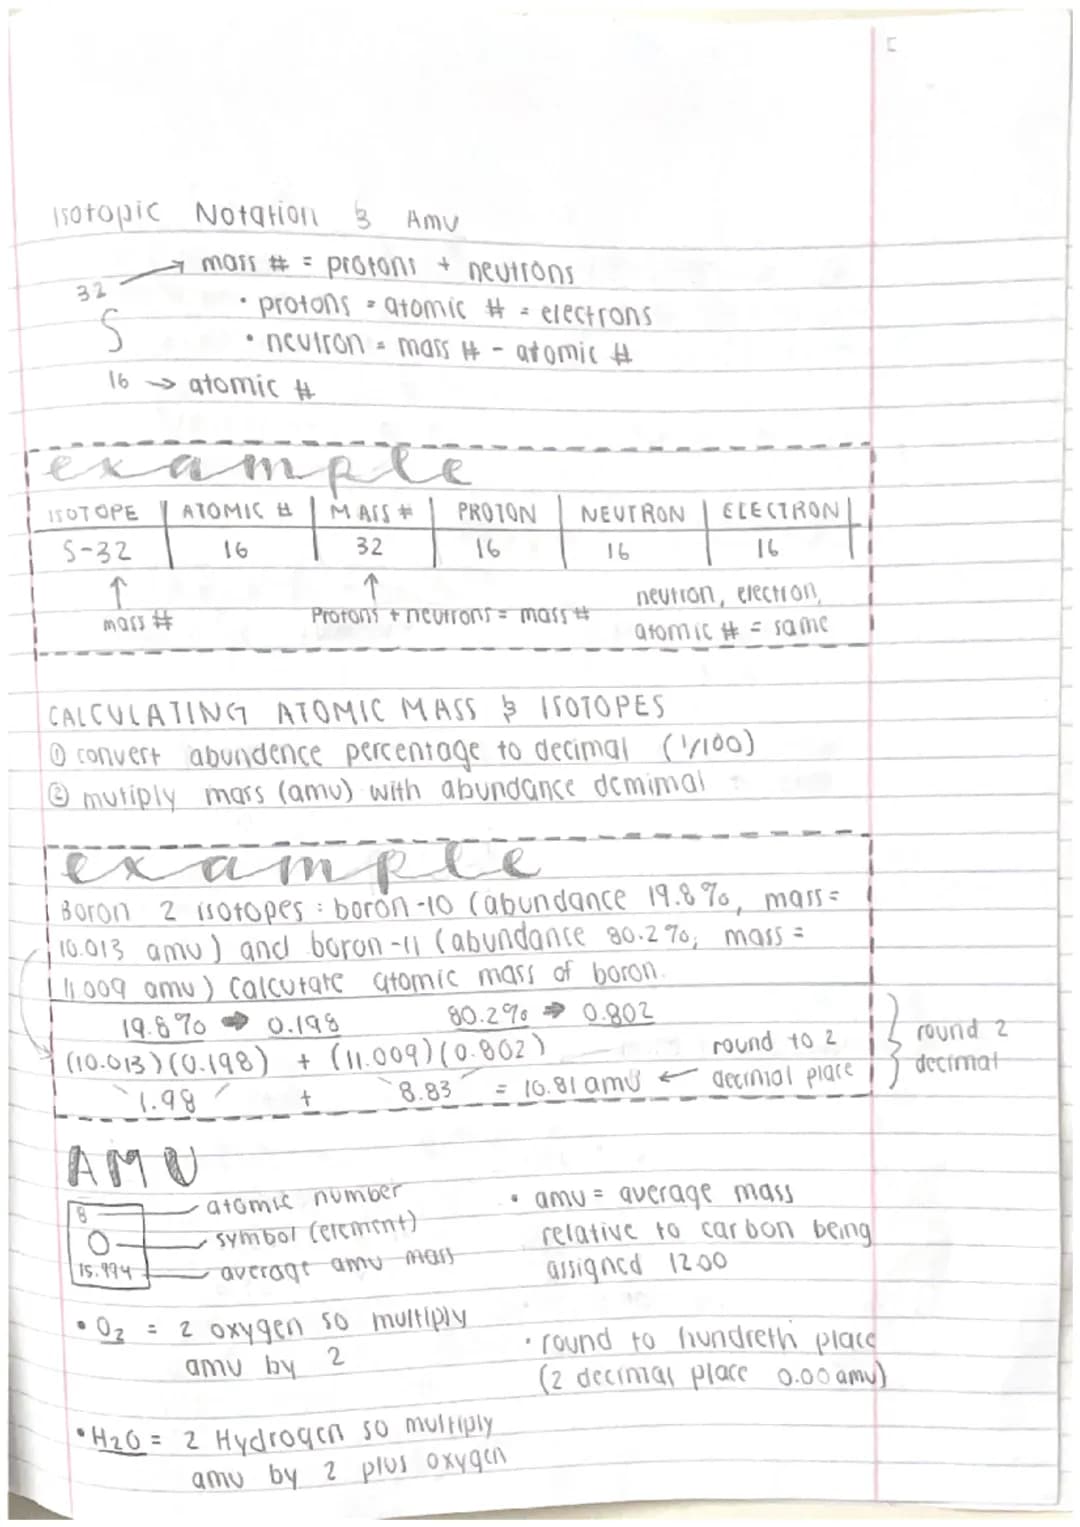 Isotopic Notation & Amu
mass # = protons + neutrons
32
• protons = atomic # = electrons
S
• neutron = mass # - atomic #
16 → atomic #
example
ISOTOPE ATOMIC # MASS # PROTON NEUTRON ELECTRON
S-32 16 32 16 16 16
↑ ↑
mass # Protons + neutrons = mass # neutron, electron,
atomic # = same
CALCULATING ATOMIC MASS & ISOTOPES
① convert abundence percentage to decimal (1/100)
② mutiply mass (amu) with abundance demimal
example
Boron 2 isotopes : boron-10 (abundance 19.8%, mass=
10.013 amu) and boron-11 (abundance 80.2%, mass =
11.009 amu) Calculate atomic mass of boron.
19.8% → 0.198 80.2% → 0.802
(10.013)(0.198) + (11.009)(0.802) round to 2
1.98 + 8.83 = 10.81 amu ← decimal place
round 2
decimal
AMU
8 atomic number
O symbol (element)
15.994 average amu mass
• amu = average mass
relative to carbon being
assigned 12.00
• O2 = 2 oxygen so multiply
amu by 2
• round to hundreth place
(2 decimal place 0.00 amu)
• H2O = 2 Hydrogen so multiply
amu by 2 plus oxygen